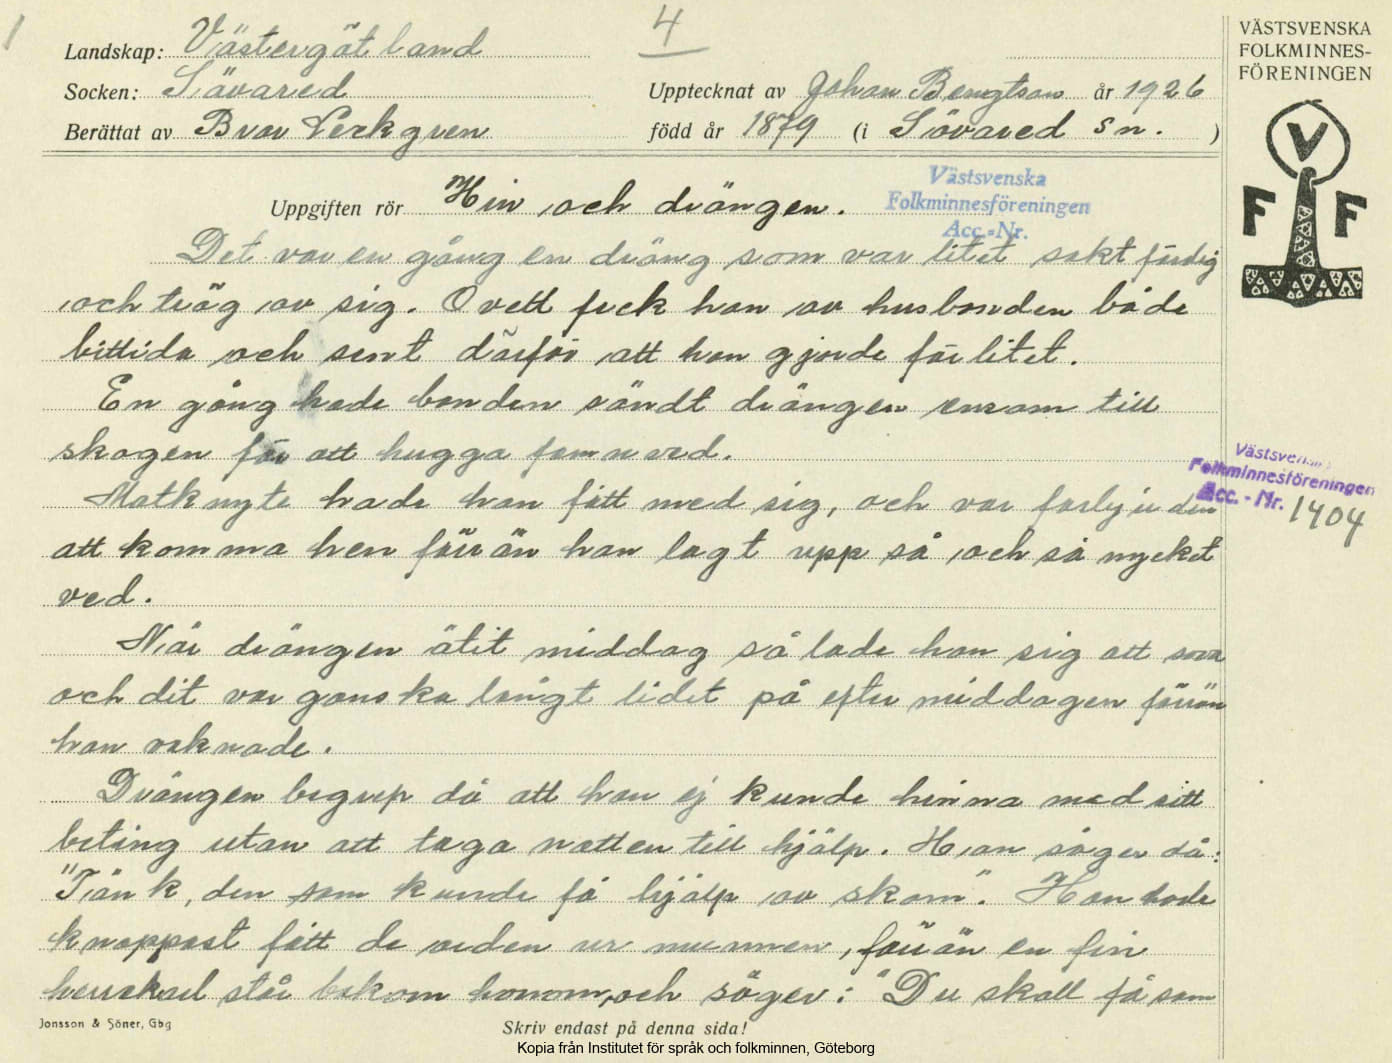 4
Landskap: Västergötland
Socken: Sävared
Upptecknat av Johan Bengtson år 1926
Berättat av Bror Verkgren född år 1879 (i Sövared sn. )
VÄSTSVENSKA
FOLKMINNES-
FÖRENINGEN
V
F F
Uppgiften rör Hin och drängen.
Västsvenska
Folkminnesföreningen
Acc.-Nr.
Det var en gång en dräng som var litet saktfärdig
och trög av sig. Ovett feck han av husbonden både
bittida och sent därför att han gjorde för litet.
En gång hade bonden sändt drängen ensam till
skogen för att hugga famnved.
Matknyte hade han fått med sig, och var förbjuden
att komma hem förrän han lagt upp så och så mycket
ved.
Västsvenska
Folkminnesföreningen
Acc.-Nr. 1404
När drängen ätit middag så lade han sig att sova
och dit var ganska långt lidet på eftermiddagen förrän
han vaknade.
Drängen begrep då att han ej kunde hinna med sitt
beting utan att taga natten till hjälp. Han säger då:
"Tänk, den som kunde få hjälp av skam". Han hade
knappast fått de orden ur munnen, förrän en fin
herrekarl står bakom honom, och säger: "Du skall få som
Jonsson & Söner, Gbg
Skriv endast på denna sida!
Kopia från Institutet för språk och folkminnen, Göteborg